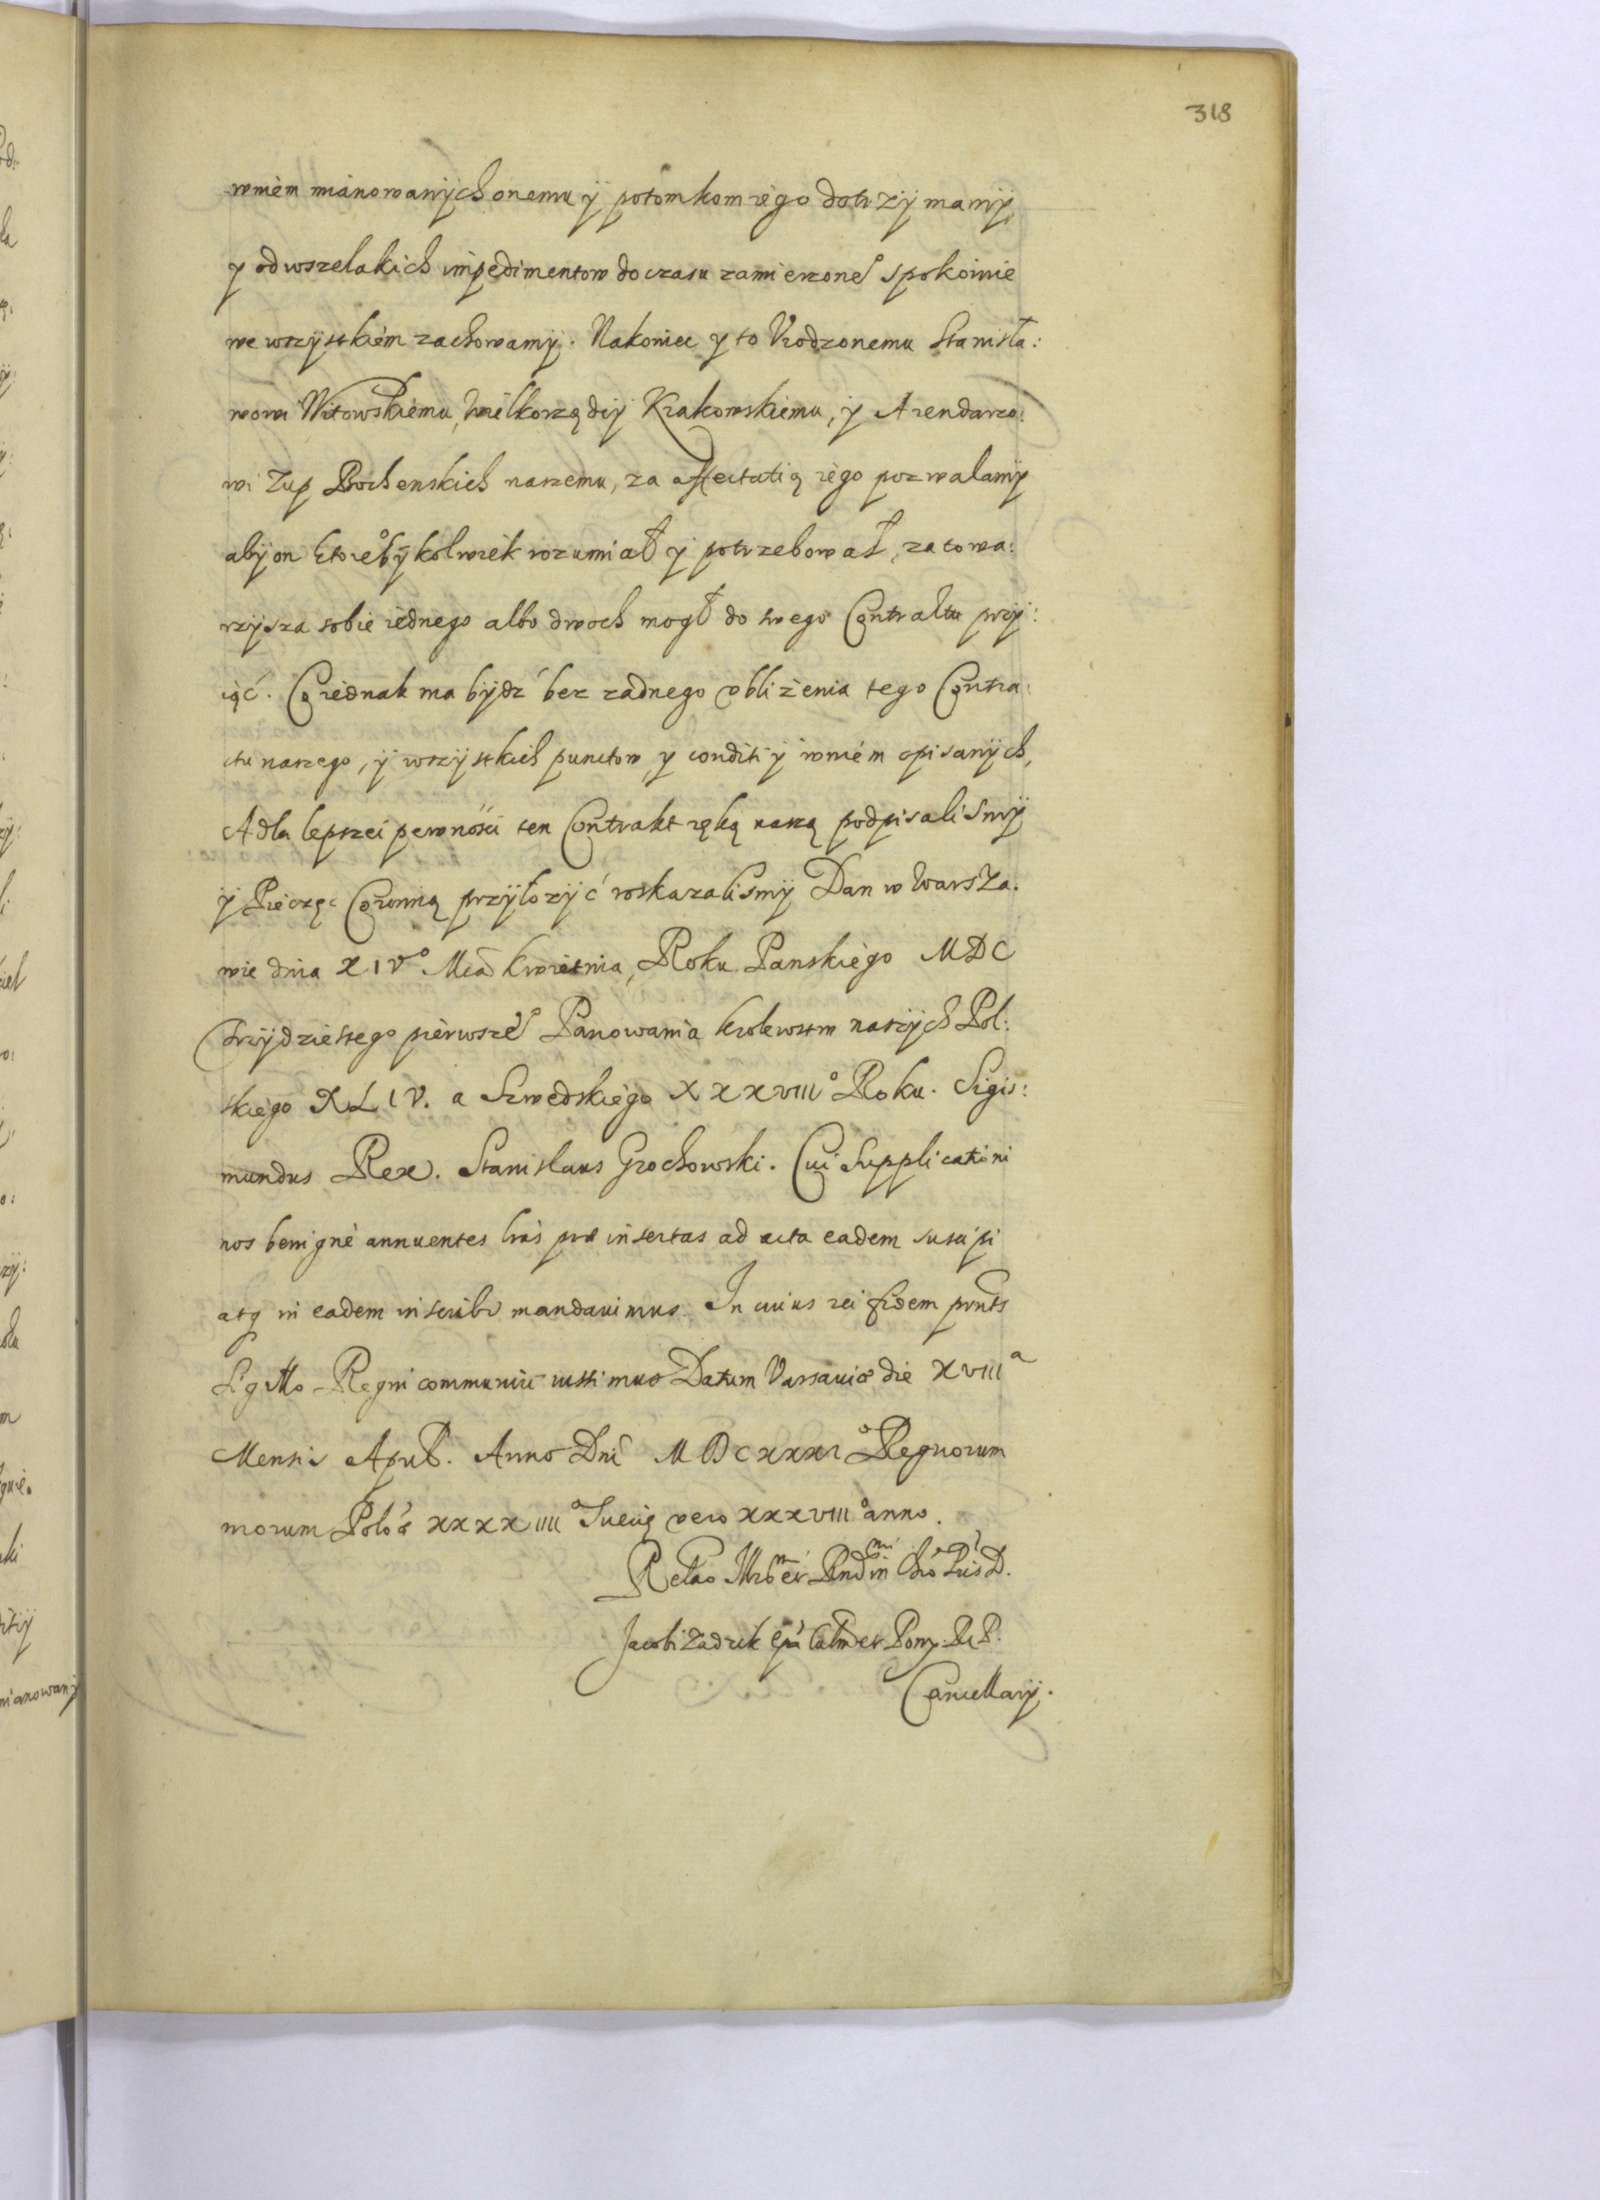 318
wniem mianowanych onemu ÿ potomkom iego dotrzÿmamÿ
y od wszelakich impedimentow do czasu zamierzone° spokoinie
we wszÿstkiem zachowamÿ. Nakoniec y to Vrodzonemu Stanisła:
wowi Witowskiemu, Wielkorządcÿ Krakowskiemu, ÿ Arendarzo:
wi Zup Bochenskich naszemu, za affectatią iego pozwalamÿ
abÿ on ktore°bÿkolwiek rozumiał ÿ potrzebował, za towa:
rzÿsza sobie iednego albo dwoch mogł do tego Contraktu przÿ:
iąć. Co iednak ma bÿdź bez zadnego vbliżenia tego Contra:
ctu naszego, ÿ wszÿstkich punctow y conditiÿ wniem opisanÿch,
A dla lepszei pewnosci ten Contrakt ręką naszą podpisalismÿ
ÿ Pieczęc Coronną przÿłozÿć roskazalismÿ Dan w Warsza.
wie dnia XIV° Mca Kwietnia, Roku Panskiego MDC
trzÿdziestego pierwsze° Panowania krolewstw naszÿch Pol:
skiego XLIV. a Szwedskiego XXXVIII° Roku. Sigis:
mundus Rex. Stanislaus Grochowski. Cui Supplicationi
nos benignè annuentes lras præinsertas ad acta eadem suscipi
atq in eadem inscribi mandauimus. In cuius rei fidem prnts
Sigillo Regni communiri iussimus Datum Varsauiæ die XVIII a
Mensis Apríl. Anno Dni MDCXXXI° Regnorum
nrorum Polo'æ XXXXIIII° Suecię vero XXXVIII° anno.
Relao Illrmi et Rndmi Chro Pris D.
Jacobi Zadzik Epi Culmen et Pom. R. P.
Cancellarÿ.